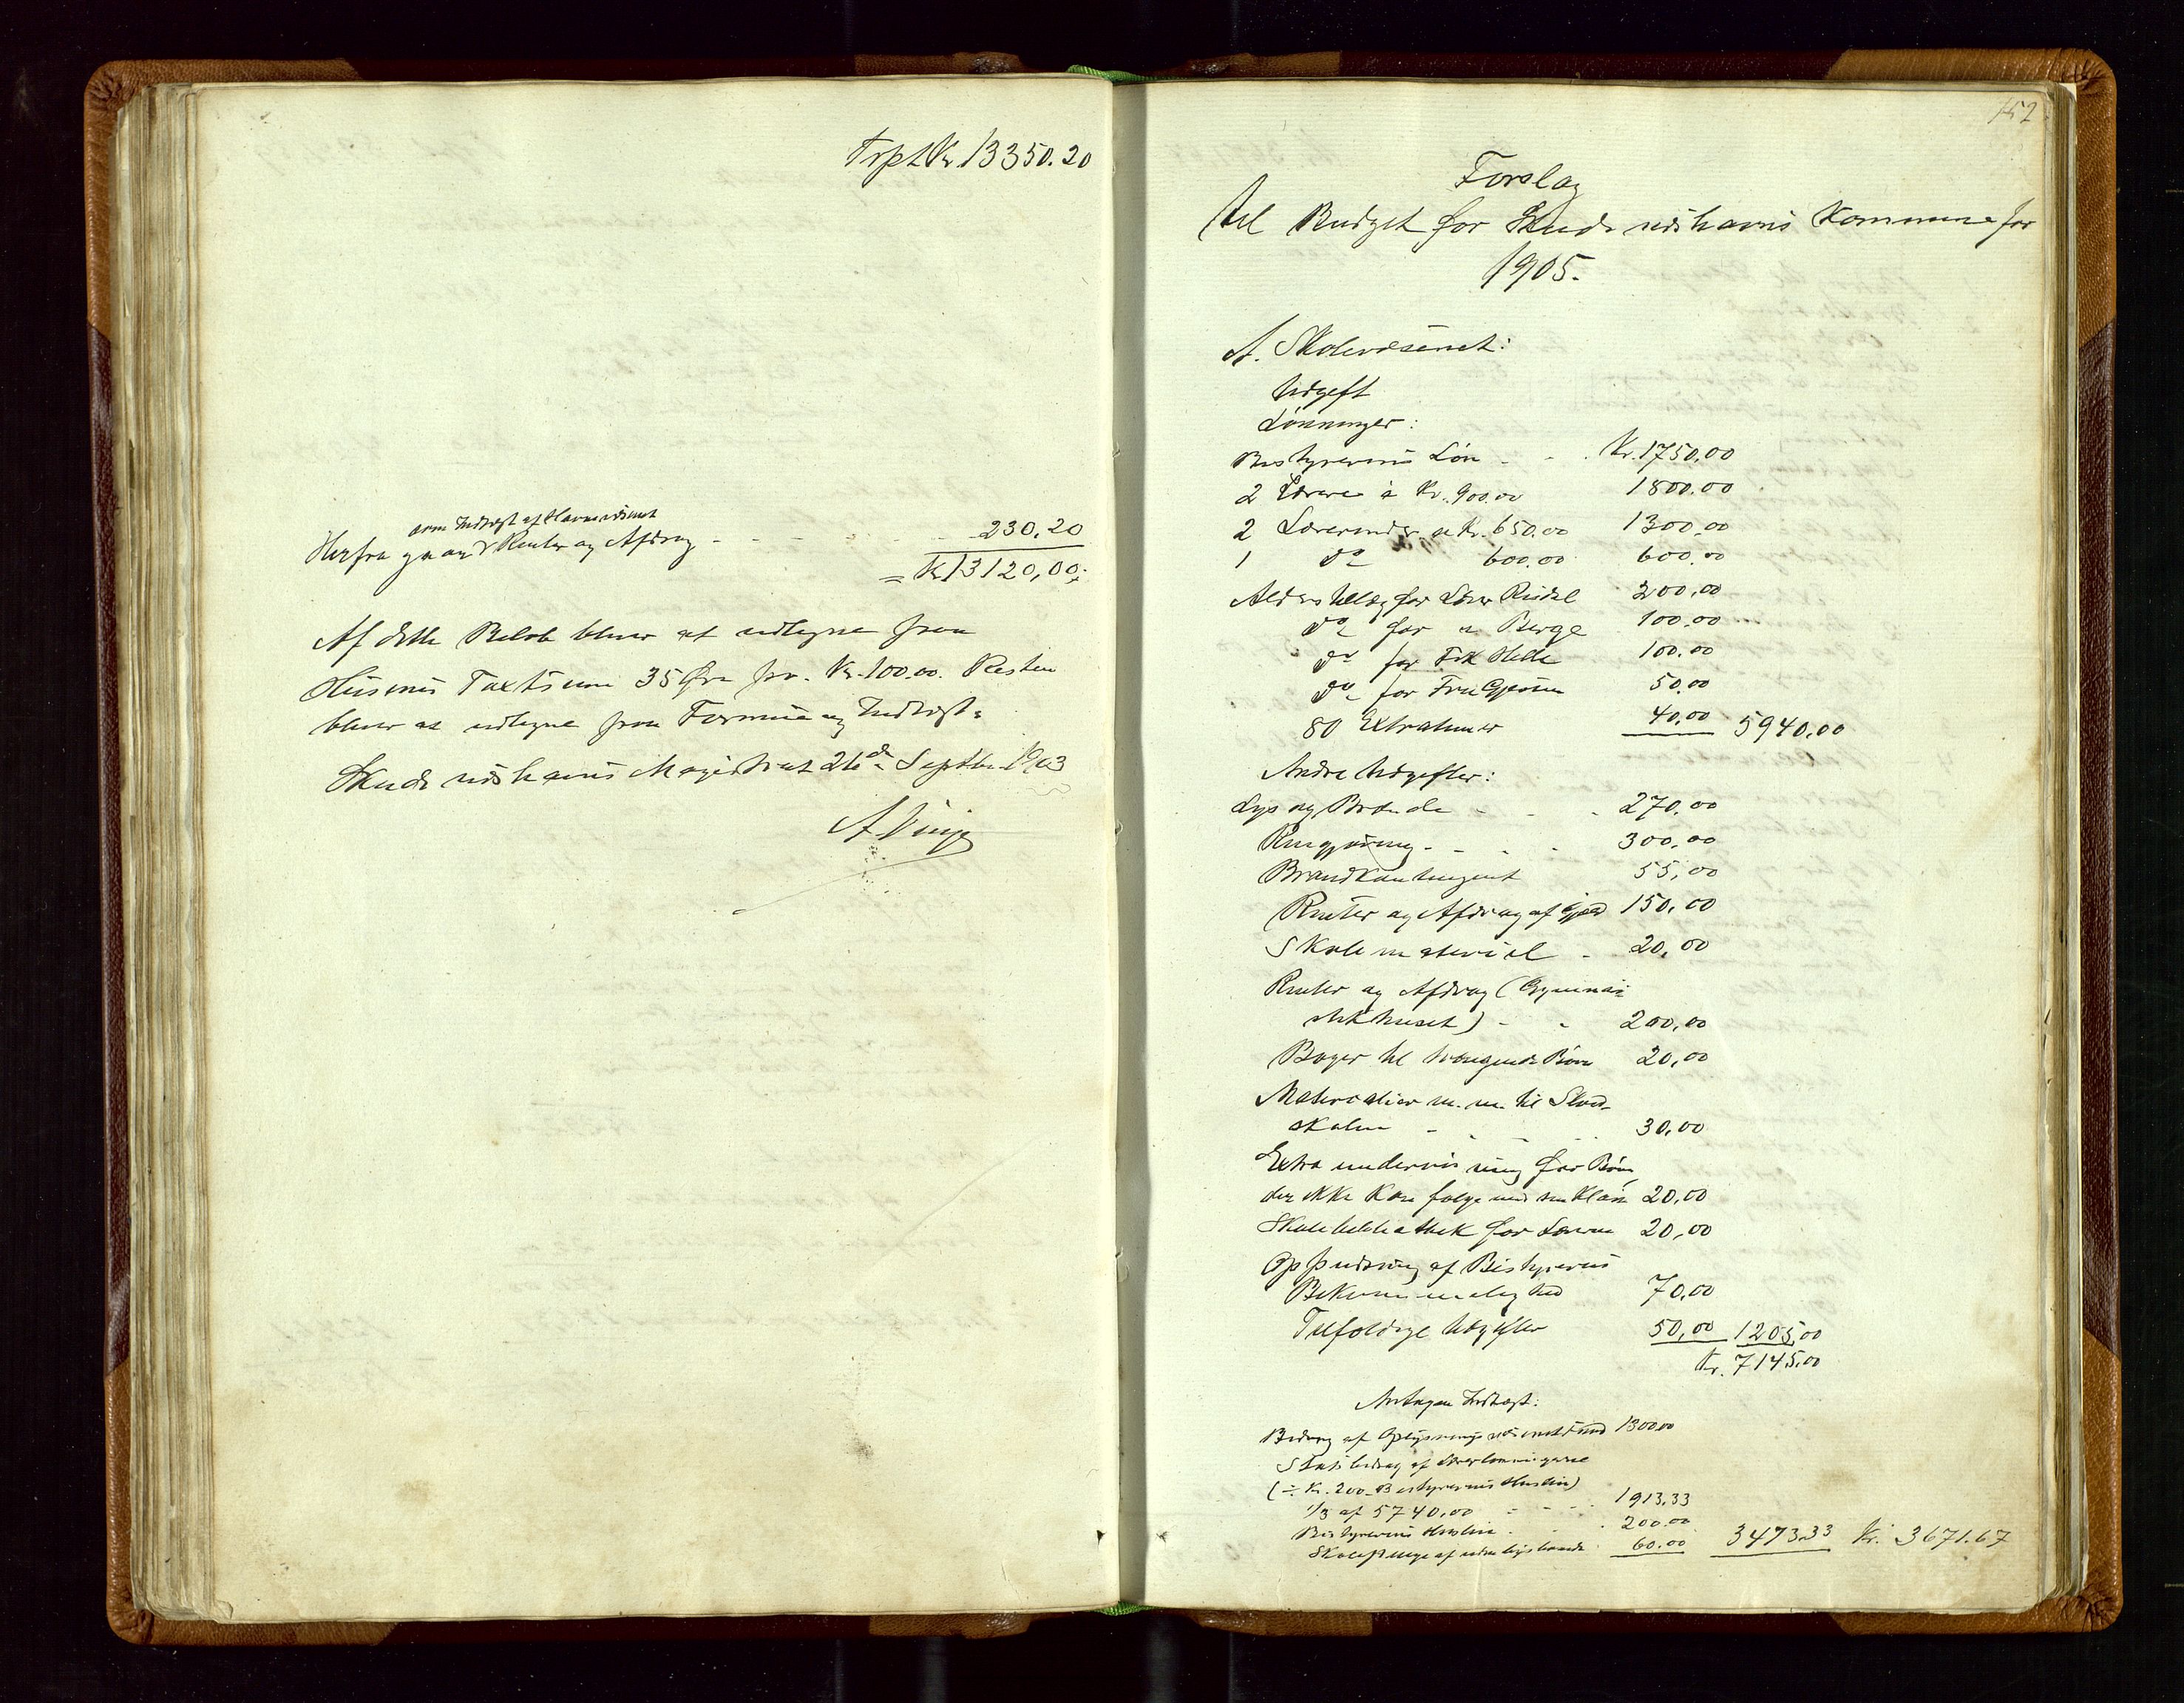 Trpt Kr. 13350.20
som Indtægt af Havnevæsenet
Herfra gaar Renter og Afdrag - - - 230,20
= Kr 13120,00
Af dette Beløb bliver at udligne paa
Husenes Taxtsum 35 Øre pr. Kr. 100.00. Resten
bliver at udligne paa Formue og Indtægt.
Skudesneshavns Magistrat 26de Septbr 1903
152
Forslag
til Budget for Skudesneshavns Kommune for
1905.
A. Skolevæsenet:
Udgift
Lønninger:
Bestyrerens Løn - - . Kr. 1750,00
2 Lærere à Kr. 900.00 1800.00
2 Lærerinder à Kr. 650.00 1300,00
1 do 600.00 600.00
Alderstillæg for Lærer 200,00
do for " Berge 100,00
do for Frk 100.00
do for Fru 50.00
80 Extratimer 40,00 5940,00
Andre Udgifter:
Lys og Brænde - - . 270,00
Rengjøring - - . - 300,00
Brandkontingent 55,00
Renter og Afdrag af Gjæld 150,00
Skolemateriel - 20,00
Renter og Afdrag (Gymna-
stikhuset) - - 200,00
Bøger til trængende Børn 20,00
Materialier m. m. til Sløid-
skolen - - - 30,00
Extra undervisning for Børn
der ikke kan følge med sin Klasse 20,00
Skolebibliothek for Lærerne 20,00
Oppudsning af Bestyrerens
Bekvemmelighed 70,00
Tilfældige Udgifter 50,00 1205,00
Kr. 7145.00
Antagen Indtægt:
Bidrag af Oplysningsvæsenets Fond 1300.00
Statsbidrag af Lærerlønningerne
(÷ Kr. 200 Bestyrerens Husleie)
1/3 af 5740,00 - - - 1913.33
Bestyrerens Husleie - . . 200.00
Skolepenge af udenbysboende 60.00 3473.33 Kr. 3671.67